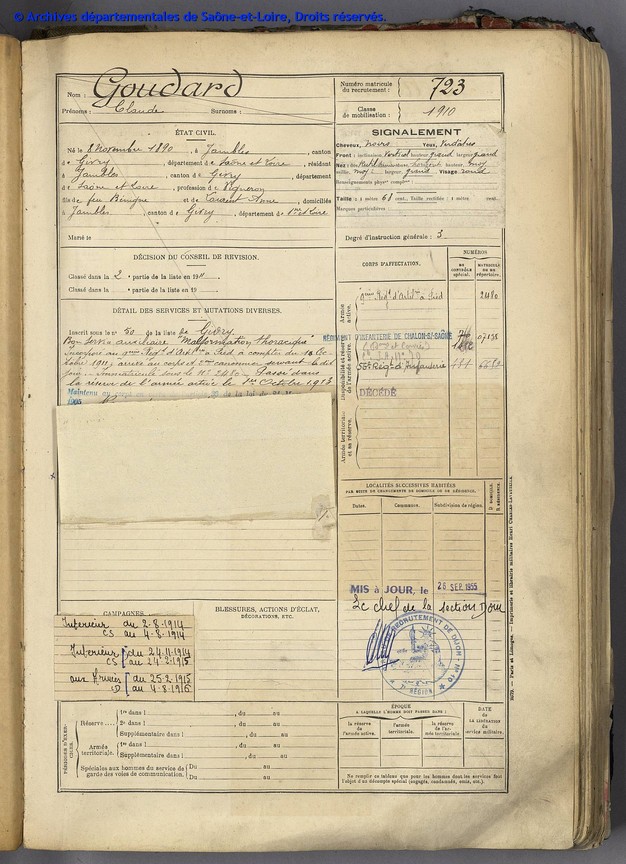 © Archives départementales de Saône-et-Loire, Droits réservés.
Nom : Goudard
Prénoms : Claude Surnoms :
Numéro matricule du recrutement : 723
Classe de mobilisation : 1910
ÉTAT CIVIL.
Né le 8 Novembre 1890, à Jambles, canton
de Givry, département de Saône et Loire, résidant
à Jambles, canton de Givry, département
de Saône et Loire, profession de Vigneron
fils de feu Bénigne et de Laurent Anne, domiciliés
à Jambles, canton de Givry, département de
Marié le
SIGNALEMENT
Cheveux, noirs Yeux, Verdâtres
Front : inclinaison Vertical hauteur grand largeur grand
Nez :
saillie, moy largeur, grand. Visage rond
Renseignements physcos complres :
Taille : 1 mètre 61 cent., Taille rectifiée : 1 mètre cent.
Marques particulières :
Degré d'instruction générale : 3
DÉCISION DU CONSEIL DE REVISION.
Classé dans la 2e partie de la liste en 1911.
Classé dans la partie de la liste en 19
DÉTAIL DES SERVICES ET MUTATIONS DIVERSES.
Inscrit sous le no 50 de la liste de Givry
Bon service auxiliaire "Malformation thoracique"
Incorporé au
à compter du 10 Oc-
tobre 1911; arrivé au corps et 2me canonnier servant le dit
jour. Immatriculé sous le No 2480. Passé dans
la réserve de l'armée active le 1er Octobre 1913
Maintenu
CORPS D'AFFECTATION.
NUMÉROS
AU CONTRÔLE SPÉCIAL.
MATRICULE OU AU RÉPERTOIRE.
Armée active.
2480
Disponibilité et réserve de l'armée active.
RÉGIMENT D'INFANTERIE DE CHALON-S/-SAÔNE
07135
56e Régt d'Infanterie
DÉCÉDÉ
Armée territoriale et sa réserve.
LOCALITÉS SUCCESSIVES HABITÉES
PAR SUITE DE CHANGEMENTS DE DOMICILE OU DE RÉSIDENCE.
Dates. Communes. Subdivision de région. D. DOMICILE. R. RÉSIDENCE.
MIS à JOUR, le 26 SEP. 1955
Le chef de la section Dom
RECRUTEMENT DE DIJON
7e RÉGION
CAMPAGNES.
Intérieur du 2-8-1914
CS au 4-8-1914
Intérieur du 24-11-1914
CS au 24-2-1915
aux Armées du 25-2-1915
CD au 4-8-1916
BLESSURES, ACTIONS D'ÉCLAT,
DÉCORATIONS, ETC.
PÉRIODES D'EXERCICES.
Réserve
1re dans l , du au
2e dans l , du au
Supplémentaire dans l , du au
Armée territoriale.
1re dans l , du au
Supplémentaire dans l , du au
Spéciales aux hommes du service de garde des voies de communication.
Du au
Du au
ÉPOQUE
À LAQUELLE L'HOMME DOIT PASSER DANS :
la réserve de l'armée active.
l'armée territoriale.
la réserve de l'armée territoriale.
DATE DE LA LIBÉRATION du service militaire.
Ne remplir ce tableau que pour les hommes dont les services font
l'objet d'un décompte spécial (engagés, condamnés, omis, etc.).
Paris et Limoges. — Imprimerie et librairie militaires Henri CHARLES-LAVAUZELLE.